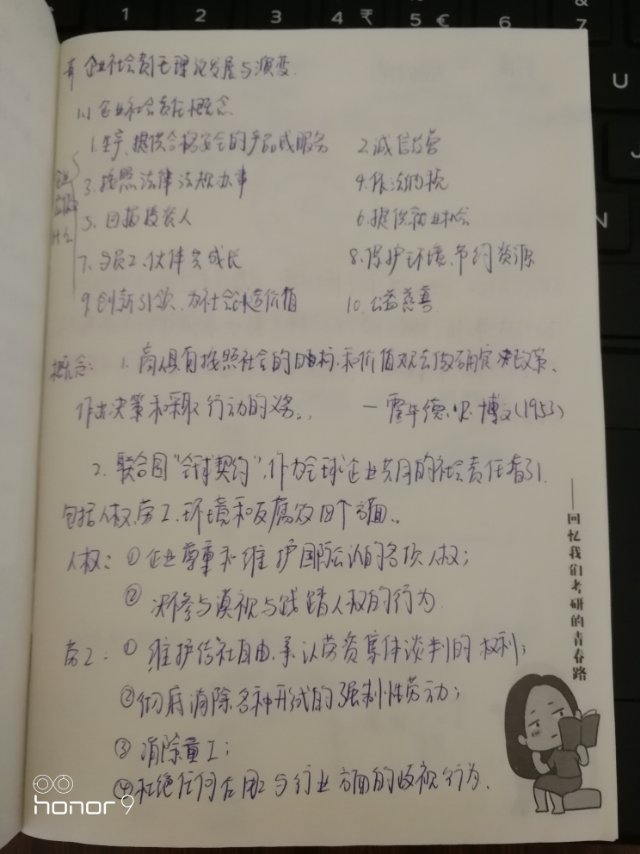 企业社会责任理论发展与演变
企业社会责任概念
1. 生产、提供合格安全的产品或服务 2. 诚信经营
3. 按照法律法规办事 4. 依法纳税
5. 回报投资人 6. 提供就业机会
7. 与员工、伙伴共成长 8. 保护环境、节约资源
9. 创新引领、为社会创造价值 10. 公益慈善
概念: 1. 商人具有按照社会的目标和价值观去确定政策、
作出决策和采取行动的义务。 —霍华德·R·博文(1953)
2. 联合国“全球契约”,作为全球企业共同的社会责任指引.
包括人权、劳工、环境和反腐败四个方面。
人权: ① 企业尊重和维护国际公认的各项人权;
② 决不参与漠视与践踏人权的行为
劳工: ① 维护结社自由,承认劳资集体谈判的权利;
② 彻底消除各种形式的强制性劳动;
③ 消除童工;
④ 杜绝任何在用工与行业方面的歧视行为.
——回忆我们考研的青春路
honor 9
&
7
₹
4
5
€
6
U
N